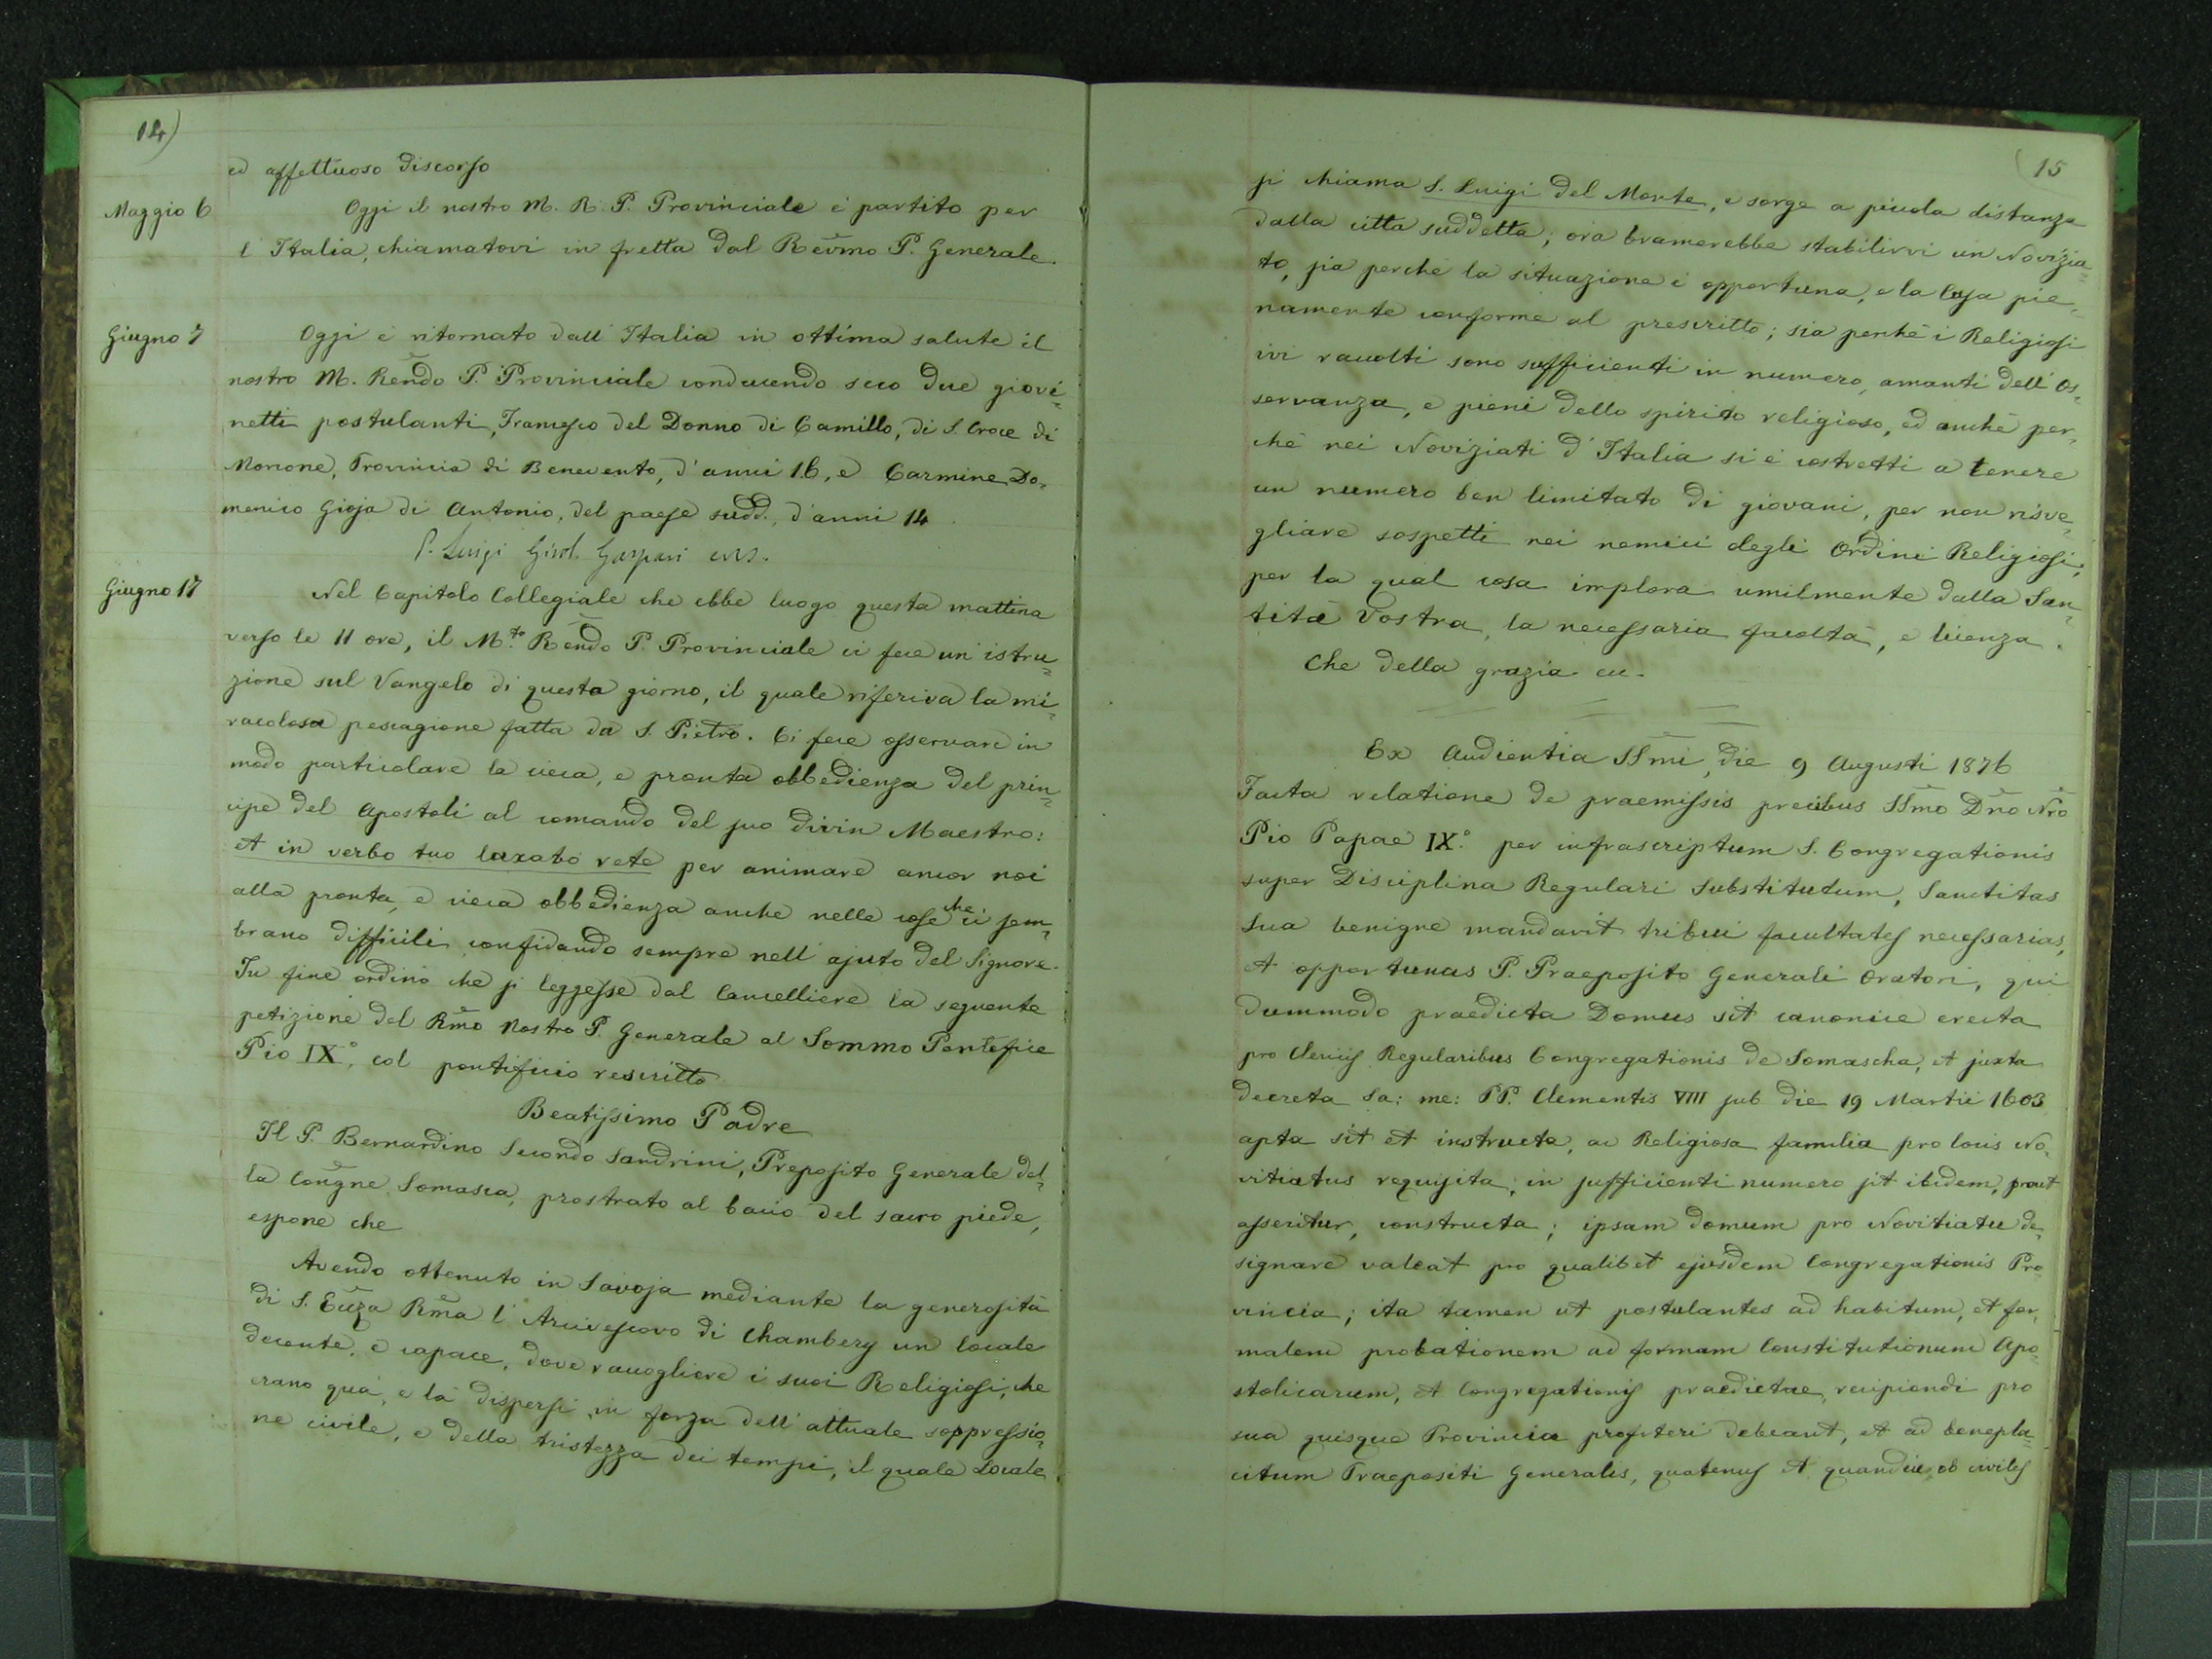 14)
ed affettuoso discorso
Maggio 6 Oggi il nostro M. R. P. Provinciale è partito per
l'Italia, chiamatovi in fretta dal Revmo P. Generale.
Giugno 7 Oggi è ritornato dall'Italia in ottima salute il
nostro M. Rendo P. Provinciale conducendo seco due giovi=
netti postulanti, Francesco del Donno di Camillo, di S. Croce di
Morcone, Provincia di Benevento, d'anni 16, e Carmine Do=
menico Gioja di Antonio, del paese sudd., d'anni 14.
P. Luigi Girol. Gaspari crs.
Giugno 17 Nel Capitolo Collegiale che ebbe luogo questa mattina
verso le 11 ore, il M.to Rendo P. Provinciale ci fece un'istru=
zione sul Vangelo di questo giorno, il quale riferiva la mi=
racolosa pescagione fatta da S. Pietro. Ci fece osservare in
modo particolare la cieca, e pronta obbedienza del prin=
cipe del Apostoli al comando del suo divin Maestro:
et in verbo tuo laxabo rete per animare ancor noi
alla pronta, e cieca obbedienza anche nelle cose che ci sem=
brano difficili confidando sempre nell'ajuto del Signore.
In fine ordinò che si leggesse dal Cancelliere la seguente
petizione del Rmo Nostro P. Generale al Sommo Pontefice
Pio IX°, col pontificio rescritto
Beatissimo Padre
Il P. Bernardino Secondo Sandrini, Preposito Generale del=
la Congne Somasca, prostrato al bacio del sacro piede,
espone che
Avendo ottenuto in Savoja mediante la generosità
di S. Ecza Rma l'Arcivescovo di Chambery un locale
decente, e capace, dove raccogliere i suoi Religiosi, che
erano quà, e là dispersi in forza dell'attuale soppressio=
ne civile, e della tristezza dei tempi, il quale Locale
(15
si chiama S. Luigi del Monte, e sorge a piccola distanza
dalla città suddetta; ora bramerebbe stabilirvi un Novizia=
to, sia perchè la situazione è opportuna, e la Casa pie=
namente conforme al prescritto; sia perchè i Religiosi
ivi raccolti sono sufficienti in numero, amanti dell'Os=
servanza, e pieni dello spirito religioso, ed anche per=
chè nei Noviziati d'Italia si è costretti a tenere
un numero ben limitato di giovani, per non risve=
gliare sospetti nei nemici degli Ordini Religiosi;
per la qual cosa implora umilmente dalla San=
tità Vostra, la necessaria facoltà, e licenza.
Che della grazia ec.
Ex Audientia SSmi, die 9 Augusti 1876
Facta relatione de praemissis precibus SSmo Dno Nro
Pio Papae IX° per infrascriptum S. Congregationis
super Disciplina Regulari Substitutum, Sanctitas
Sua benigne mandavit tribui facultates necessarias,
et opportunas P. Praeposito Generali Oratori, qui
dummodo praedicta Domus sit canonice erecta
pro Clericis Regularibus Congregationis de Somascha, et juxta
decreta sa: me: PP. Clementis VIII sub die 19 Martii 1603
apta sit et instructa, ac Religiosa familia pro locis No=
vitiatus requisita, in sufficienti numero sit ibidem, prout
asseritur, constructa; ipsam domum pro Novitiatu de=
signare valeat pro qualibet ejusdem Congregationis Pro=
vincia; ita tamen ut postulantes ad habitum, et for=
malem probationem ad formam Constitutionum Apo=
stolicarum, et Congregationis praedictae recipiendi pro
sua quisque Provincia profiteri debeant, et ad benepla=
citum Praepositi Generalis, quatenus et quandiu ob civiles